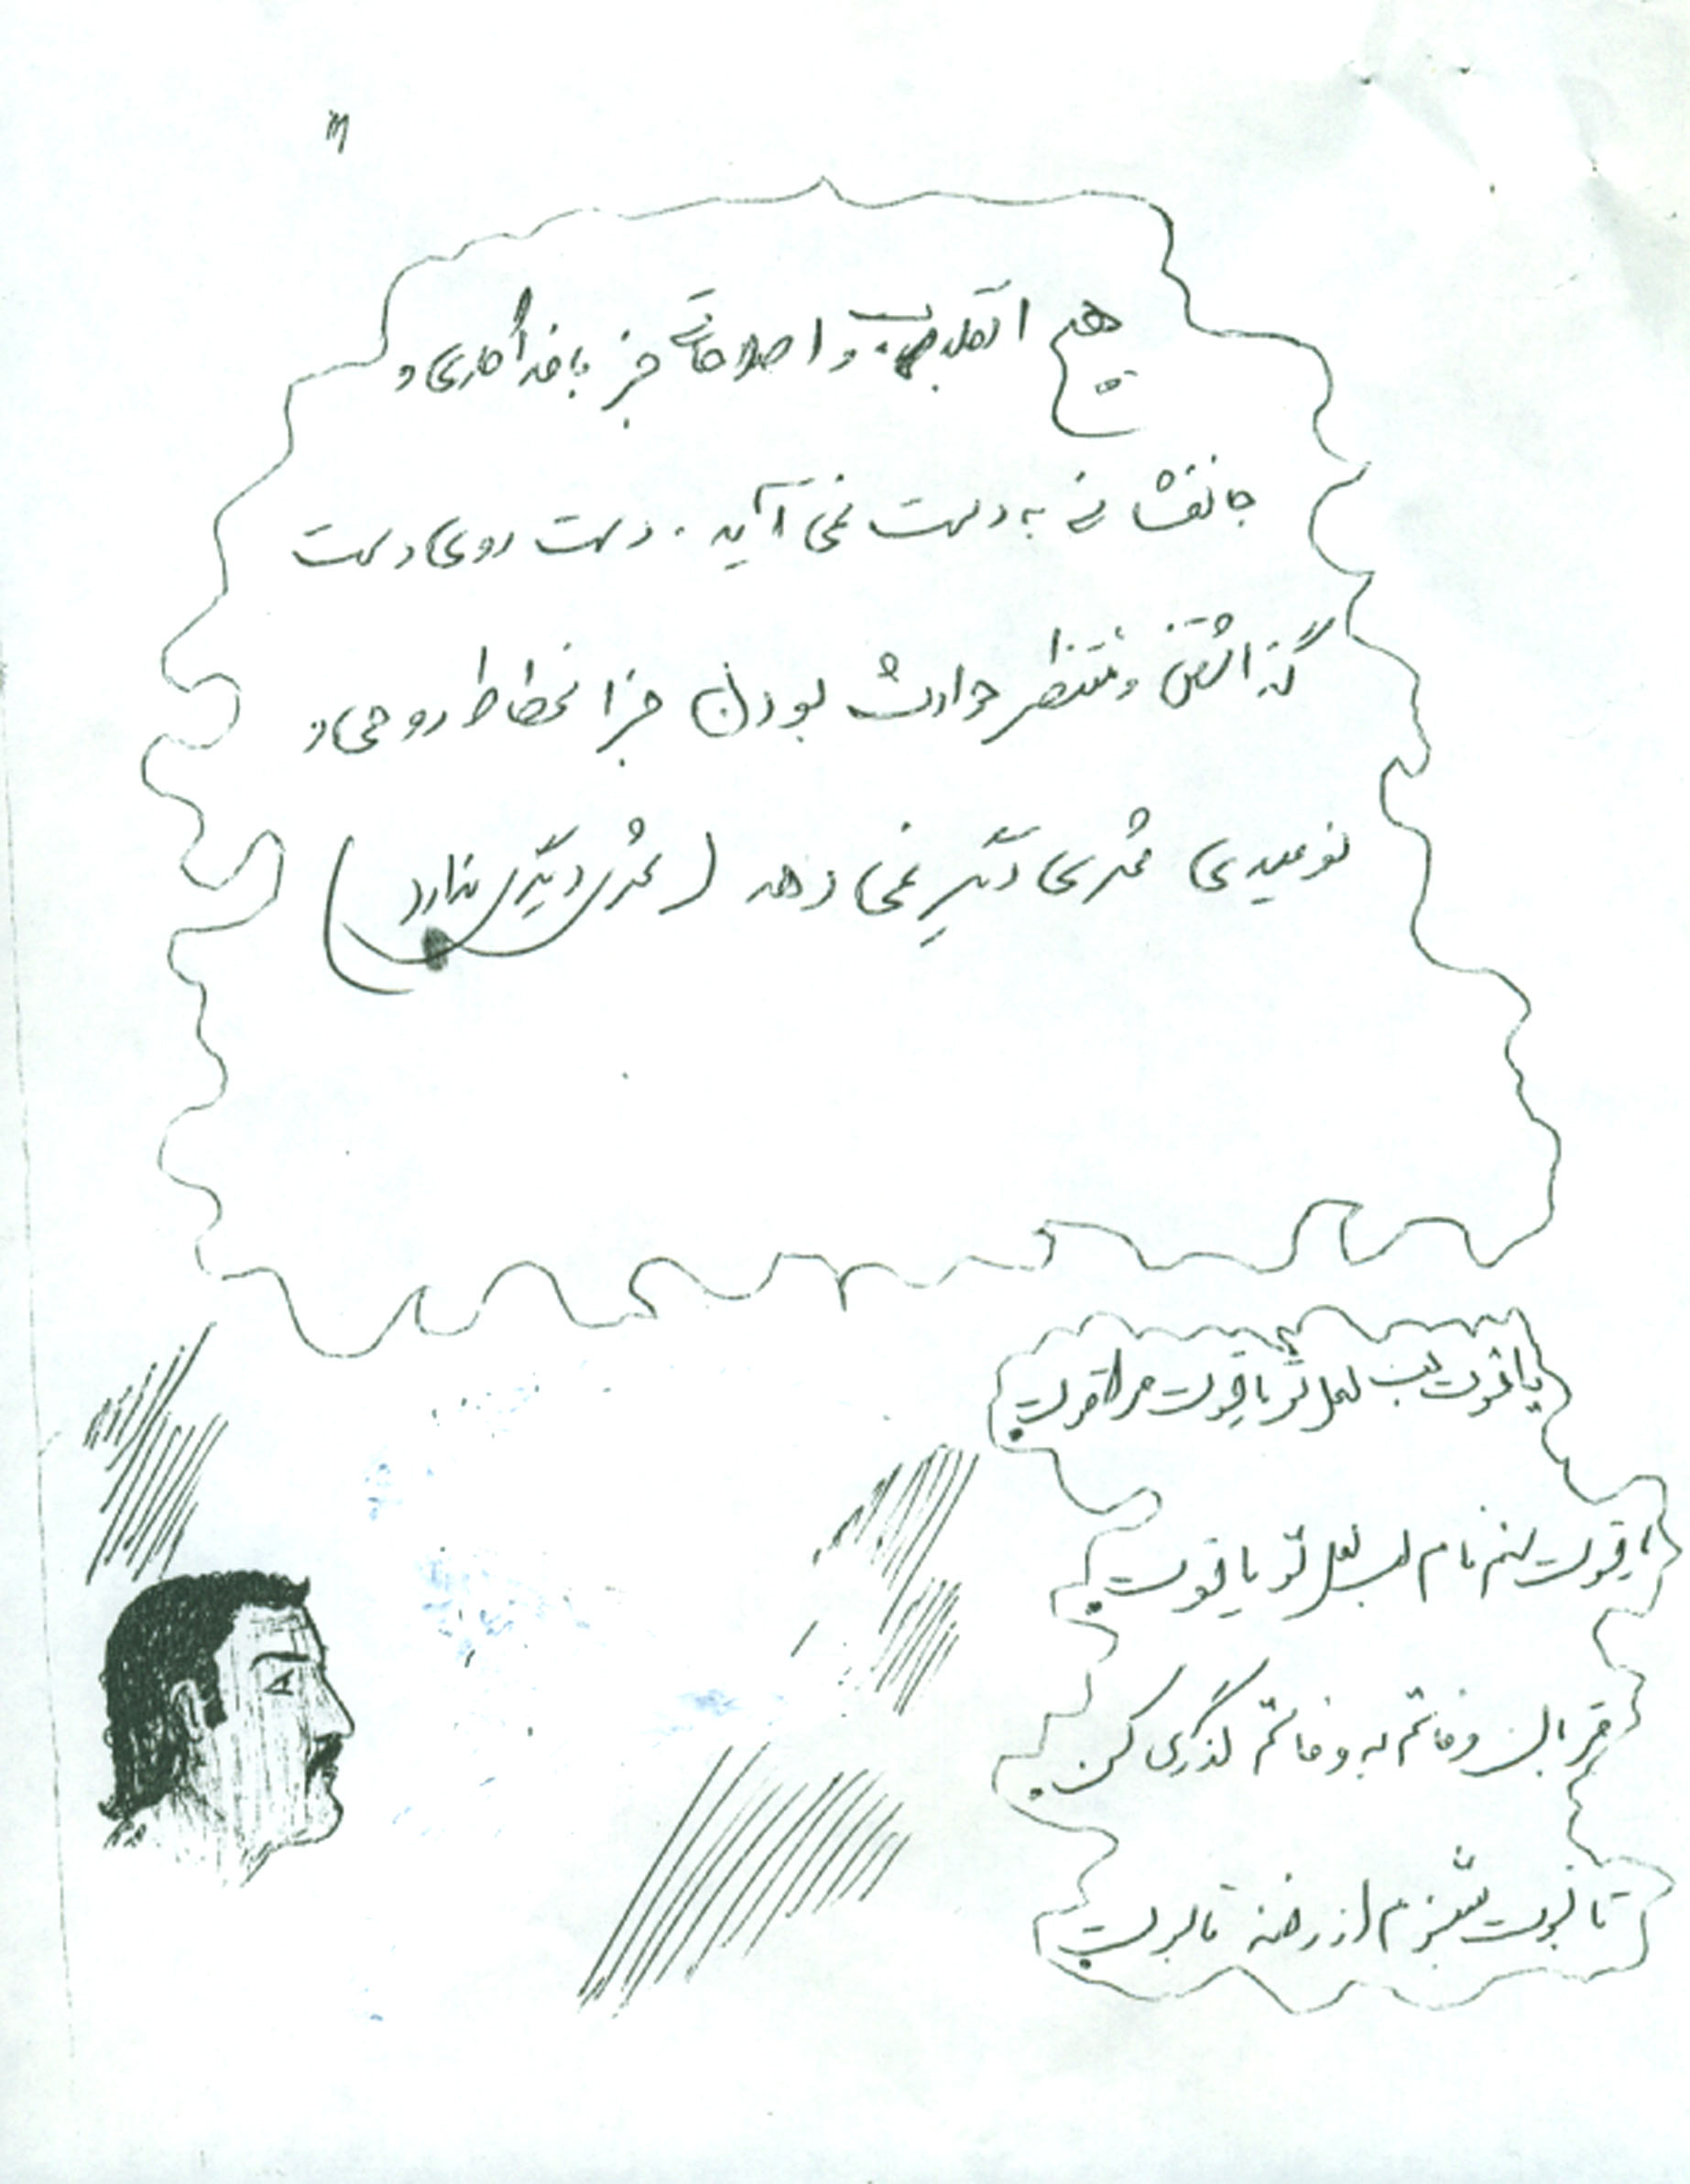 ۳
هیچ انقلاب و اصلاحاتی جز با فداکاری و
جانفشانی به دست نمی آید . دست روی دست
گذاشتن و منتظر حوادث بودن جز انحطاط روحی و
نومیدی ثمری دیگر نمی دهد ( ثمری دیگری ندارد )
یاقوت لب لعل تو یاقوت مرا قوت
یاقوت نهم نام لب لعل تو یاقوت
قربان وفاتم به وفاتم گذری کن
تابوت شنوم از رخنه تابوت